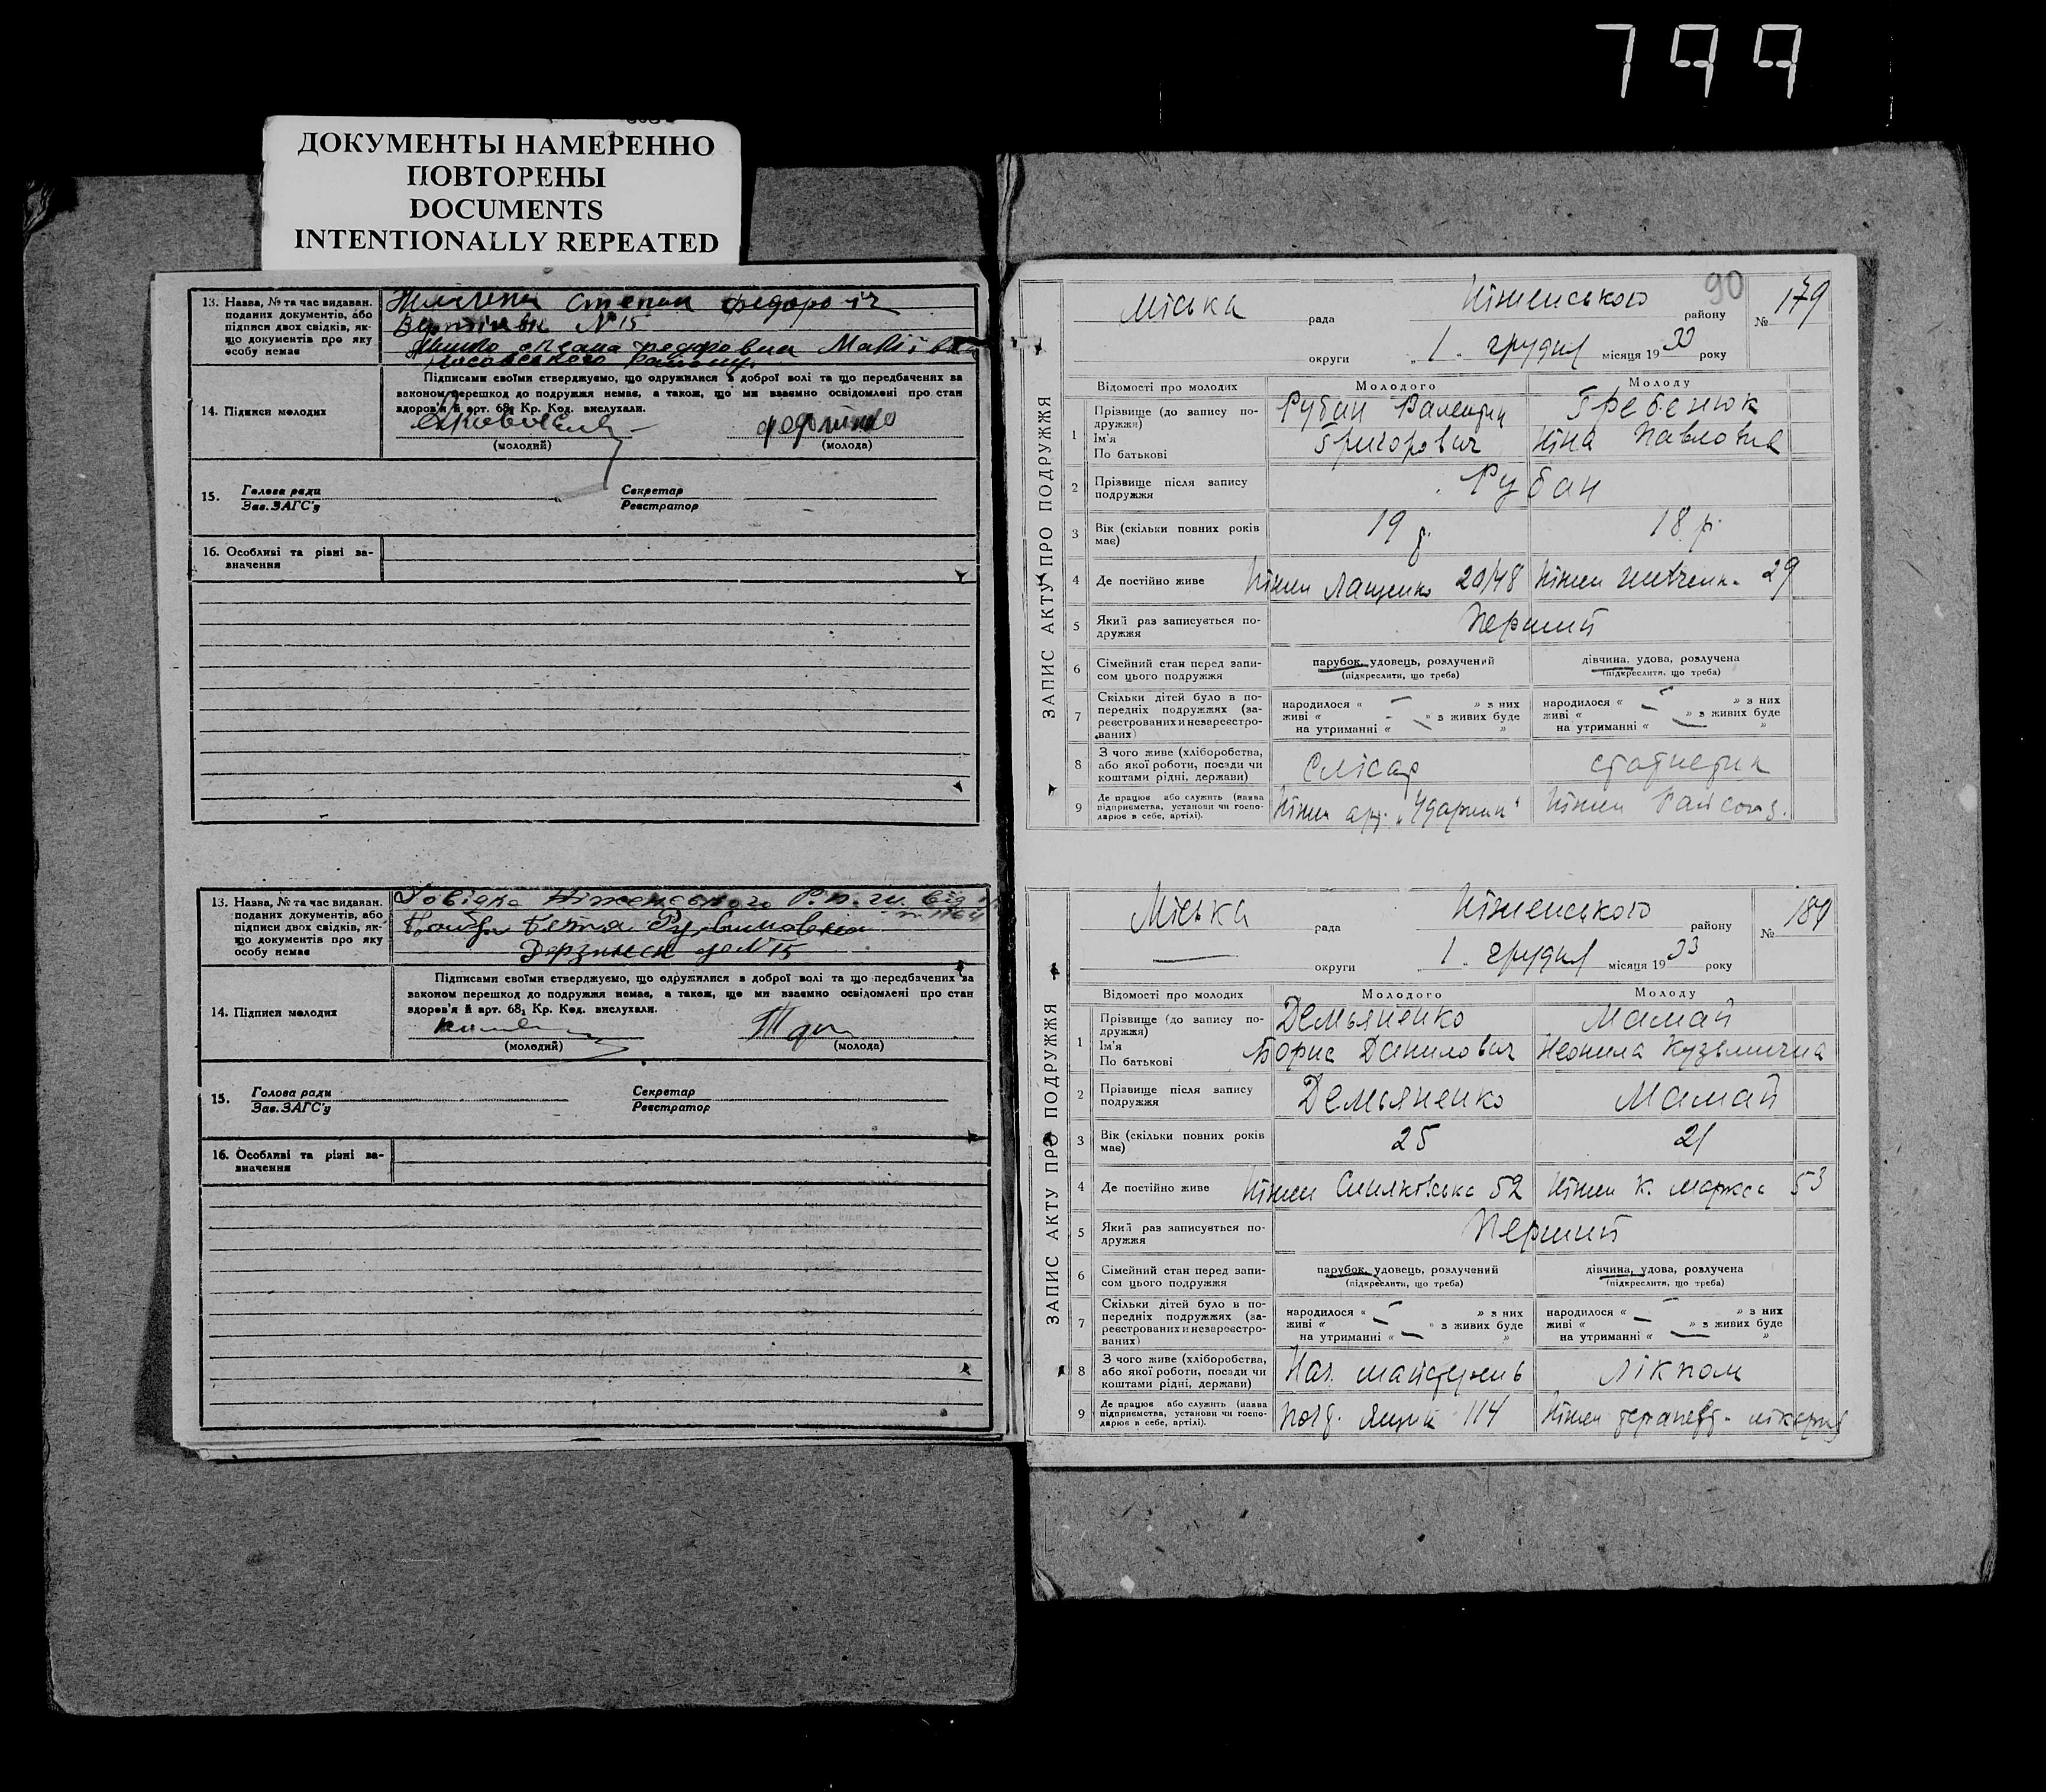 799
ДОКУМЕНТЫ НАМЕРЕННО
ПОВТОРЕНЫ
DOCUMENTS
INTENTIONALLY REPEATED
13. Назва, № та час видаван.
поданих документів, або
підписи двох свідків, як-
що документів про яку
особу немає
Степан Федоро іч
№ 15
Федоровна
14. Підписи молодих
Підписами своїми стверджуємо, що одружилися в доброї волі та що передбачених за
законом перешкод до подружжя немає, а також, що ми взаємно освідомлені про стан
здоров'я й арт. 68₁ Кр. Код. вислухали.
(молодий) (молода)
15. Голова ради Секретар
Зав. ЗАГС'у Реєстратор
16. Особливі та різні за-
значення
13. Назва, № та час видаван.
поданих документів, або
підписи двох свідків, як-
що документів про яку
особу немає
Довідка Ніженського від
№ 15
14. Підписи молодих
Підписами своїми стверджуємо, що одружилися в доброї волі та що передбачених за
законом перешкод до подружжя немає, а також, що ми взаємно освідомлені про стан
здоров'я й арт. 68₁ Кр. Код. вислухали.
(молодий) (молода)
15. Голова ради Секретар
Зав. ЗАГС'у Реєстратор
16. Особливі та різні за-
значення
90
ЗАПИС АКТУ ПРО ПОДРУЖЖЯ
Міська рада Ніженського району № 179
округи „ 1 „ грудня місяця 1933 року
Відомості про молодих Молодого Молоду
1 Прізвище (до запису по-
дружжя)
Ім'я
По батькові
Рубан Валентин
Григорович
Гребенюк
Ніна Павловна
2 Прізвище після запису
подружжя
Рубан
3 Вік (скільки повних років
має)
19 18 р.
4 Де постійно живе Ніжен Лащенко 20/48 Ніжен Шевченк. 29
5 Який раз записується по-
дружжя
Перший
6 Сімейний стан перед запи-
сом цього подружжя
парубок, удовець, розлучений
(підкреслити, що треба)
дівчина, удова, розлучена
(підкреслити, що треба)
7 Скільки дітей було в по-
передніх подружжях (за-
реєстрованих и незареєстро-
ваних)
народилося « » з них
живі « » з живих буде
на утриманні « »
народилося « » з них
живі « » з живих буде
на утриманні « »
8 З чого живе (хліборобства,
або якої роботи, посади чи
коштами рідні, держави)
Слісар статистик
9 Де працює або служить (назва
підприємства, установи чи госпо-
дарює в себе, артілі).
Ніжен арт. „Ударник" Ніжен Райсоюз.
ЗАПИС АКТУ ПРО ПОДРУЖЖЯ
Міська рада Ніженського району № 180
округи „ 1 „ грудня місяця 1933 року
Відомості про молодих Молодого Молоду
1 Прізвище (до запису по-
дружжя)
Ім'я
По батькові
Демьяненко
Борис Данилович
Мамай
Неонила Кузьминична
2 Прізвище після запису
подружжя
Демьяненко Мамай
3 Вік (скільки повних років
має)
25 21
4 Де постійно живе Ніжен 52 Ніжен К. Маркса 53
5 Який раз записується по-
дружжя
Перший
6 Сімейний стан перед запи-
сом цього подружжя
парубок, удовець, розлучений
(підкреслити, що треба)
дівчина, удова, розлучена
(підкреслити, що треба)
7 Скільки дітей було в по-
передніх подружжях (за-
реєстрованих и незареєстро-
ваних)
народилося « » з них
живі « » з живих буде
на утриманні « »
народилося « » з них
живі « » з живих буде
на утриманні « »
8 З чого живе (хліборобства,
або якої роботи, посади чи
коштами рідні, держави)
Нач. майстерень лікпом
9 Де працює або служить (назва
підприємства, установи чи госпо-
дарює в себе, артілі).
Пошт. Ящик 114 Ніжен терапевт. лікарня